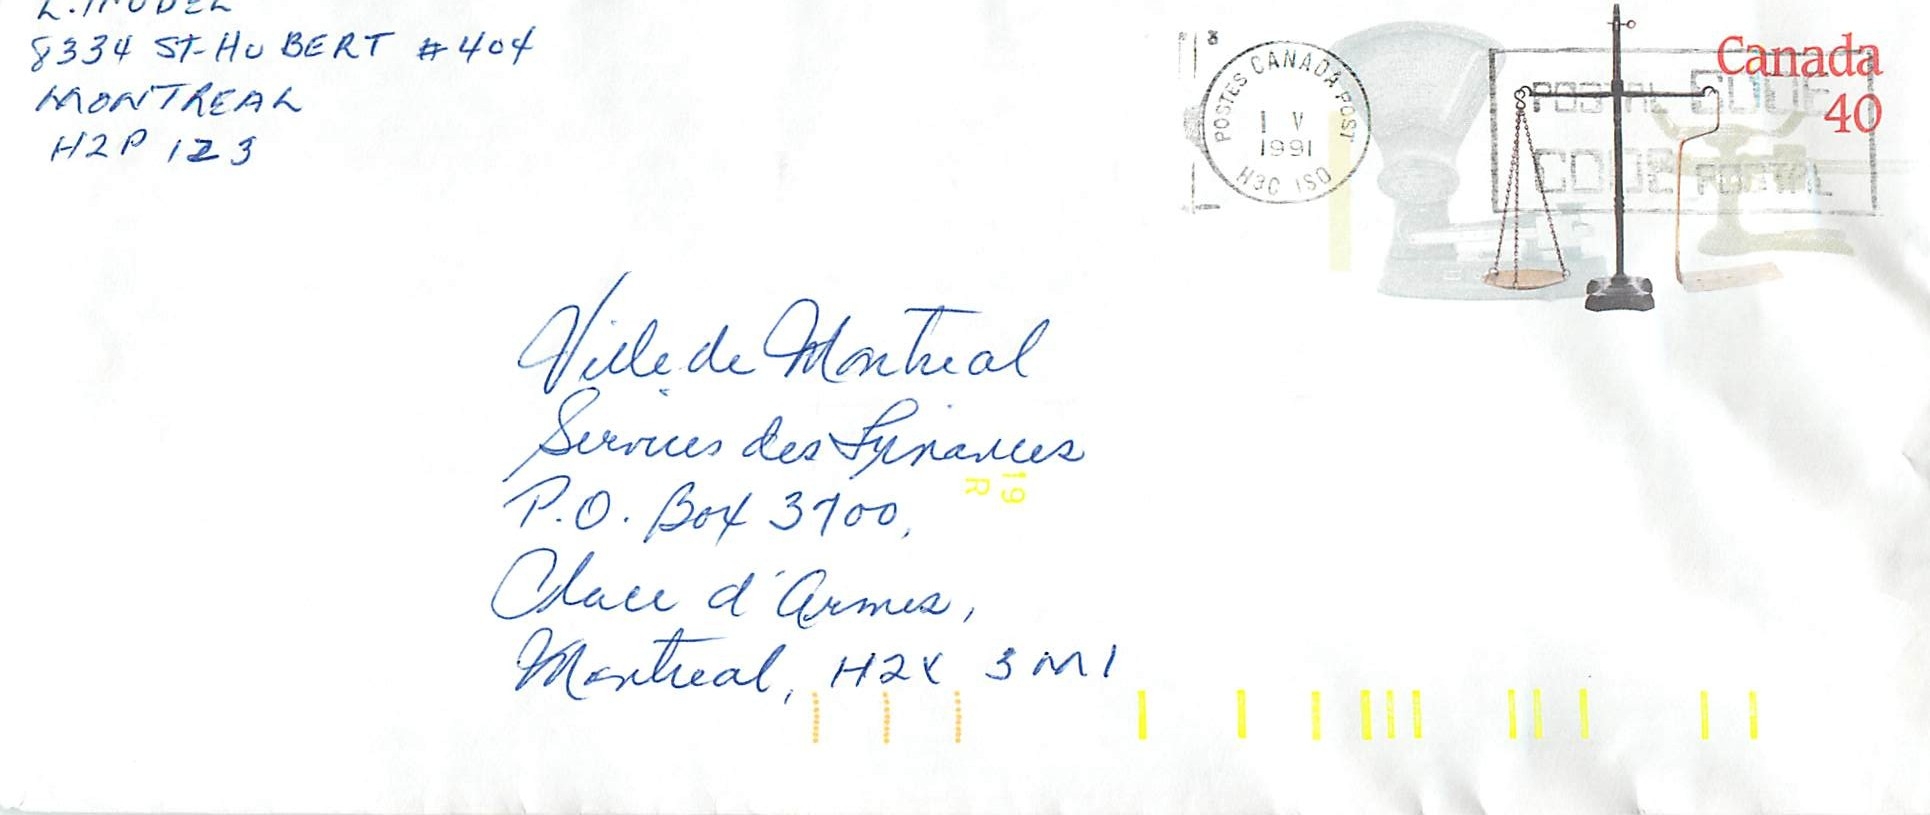 8334 ST-HUBERT #404
MONTREAL
H2P 1Z3
3
POSTES CANADA POST
1 V
1991
H3C 1S0
Canada
40
POSTAL CODE
CODE POSTAL
Ville de Montreal
Services des Finances
P.O. Box 3700,
Place d'Armes,
Montreal, H2X 3M1
19
R